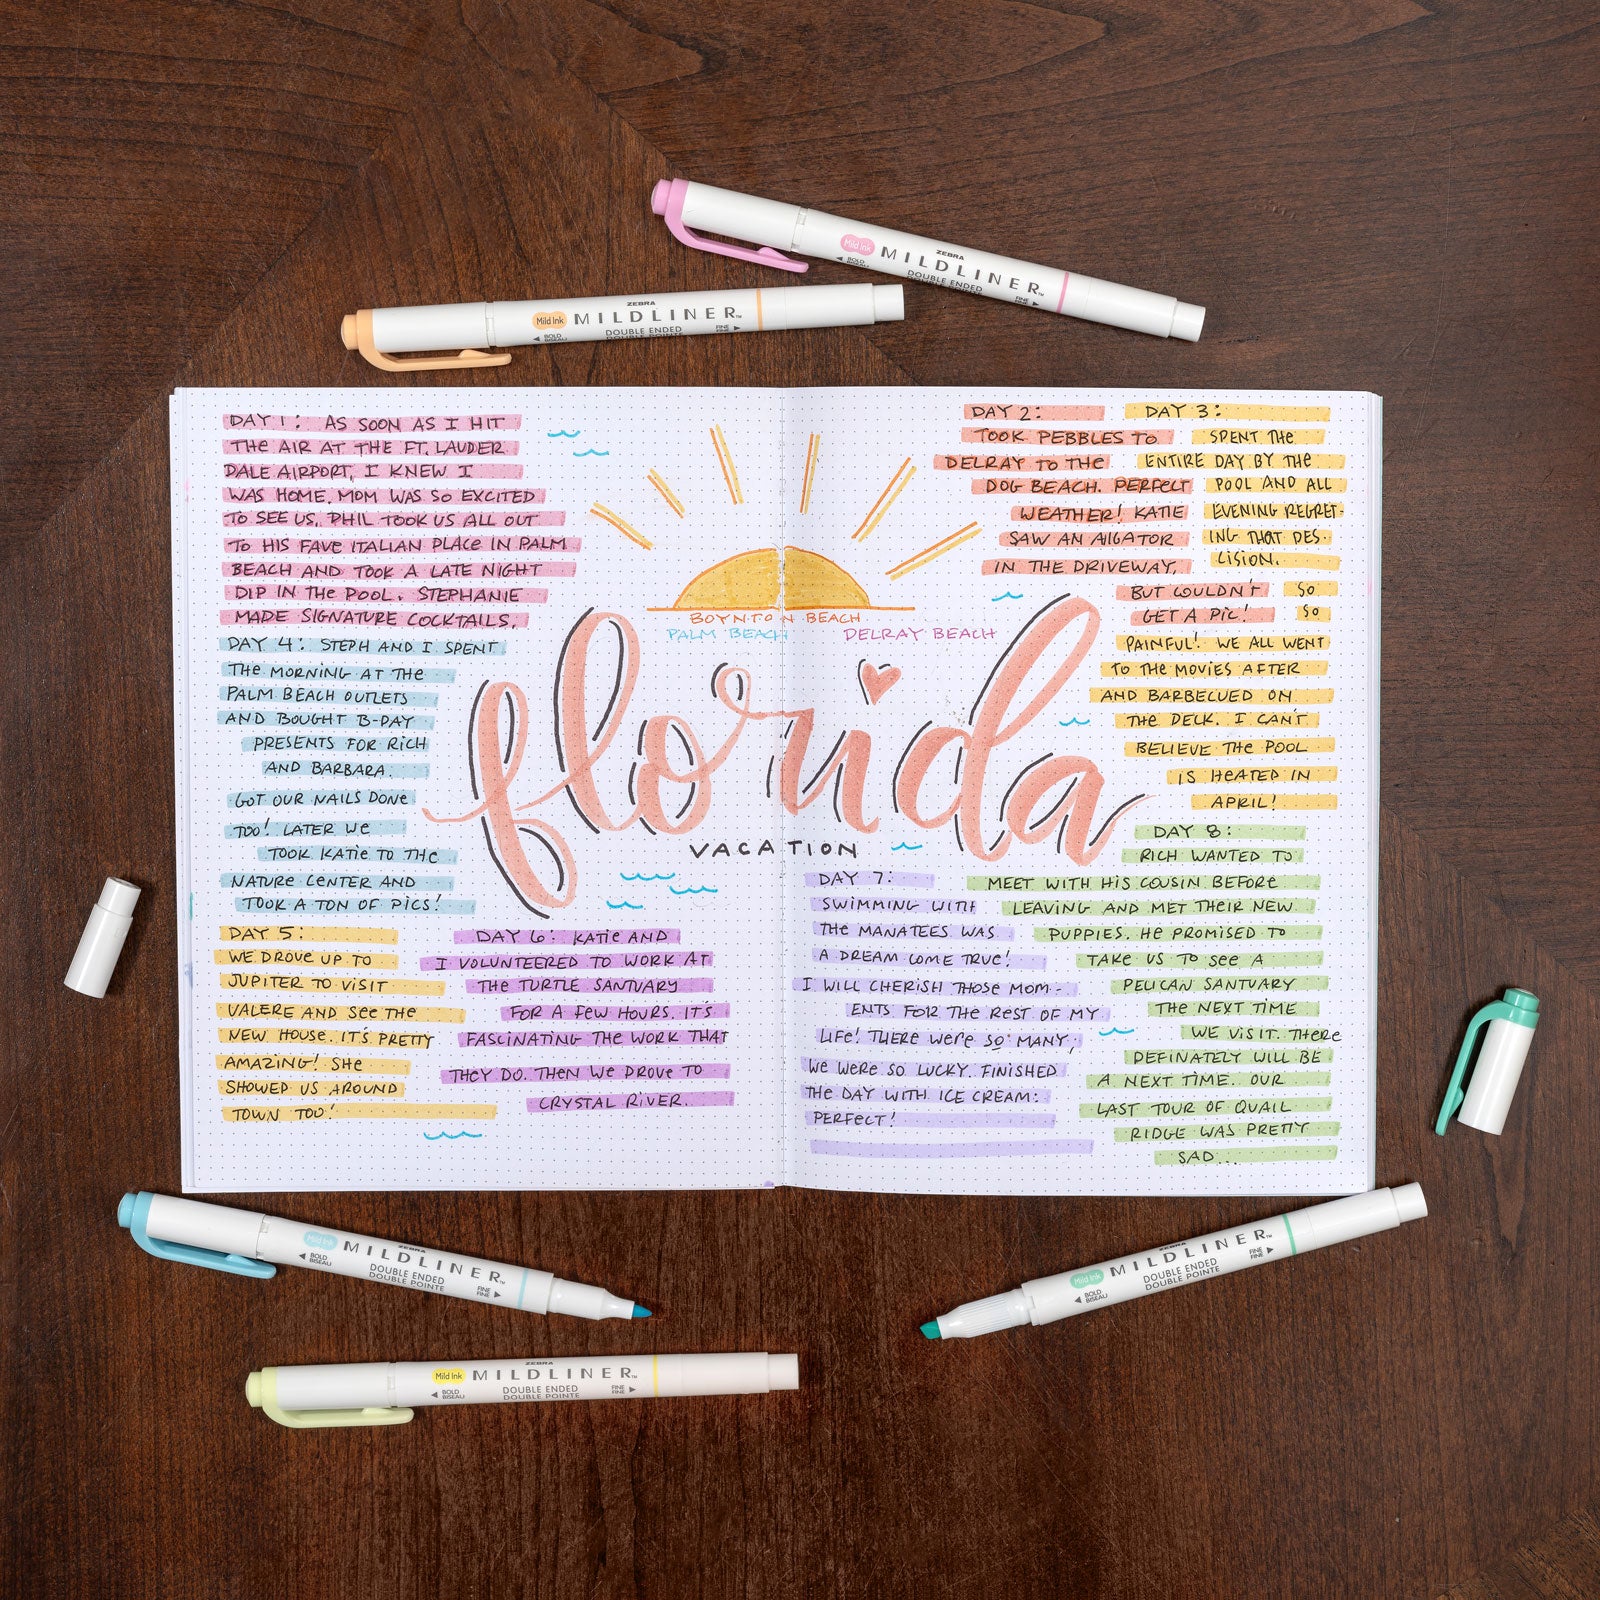 Mild Ink
ZEBRA
MILDLINER™
DOUBLE ENDED
◄ BOLD
BISEAU
FINE
FINE ►
ZEBRA
Mild Ink
MILDLINER™
DOUBLE ENDED
DOUBLE POINTE
◄ BOLD
BISEAU
FINE
FINE ►
DAY 1: AS SOON AS I HIT
THE AIR AT THE FT. LAUDER
DALE AIRPORT, I KNEW I
WAS HOME. MOM WAS SO EXCITED
TO SEE US. PHIL TOOK US ALL OUT
TO HIS FAVE ITALIAN PLACE IN PALM
BEACH AND TOOK A LATE NIGHT
DIP IN THE POOL. STEPHANIE
MADE SIGNATURE COCKTAILS.
DAY 2:
TOOK PEBBLES TO
DELRAY TO THE
DOG BEACH. PERFECT
WEATHER! KATIE
SAW AN AlIGATOR
IN THE DRIVEWAY.
BUT COULDN'T
GET A PIC!
DAY 3:
SPENT THE
ENTIRE DAY BY THE
POOL AND ALL
EVENING REGRET-
ING THAT DES-
CISION.
SO
SO
PAINFUL! WE ALL WENT
TO THE MOVIES AFTER
AND BARBECUED ON
THE DECK. I CAN'T
BELIEVE THE POOL
IS HEATED IN
APRIL!
BOYNTON BEACH
PALM BEACH
DELRAY BEACH
florida
VACATION
DAY 4: STEPH AND I SPENT
THE MORNING AT THE
PALM BEACH OUTLETS
AND BOUGHT B-DAY
PRESENTS FOR RICH
AND BARBARA.
GOT OUR NAILS DONE
TOO! LATER WE
TOOK KATIE TO THE
NATURE CENTER AND
TOOK A TON OF PICS!
DAY 5:
WE DROVE UP TO
JUPITER TO VISIT
VALERE AND SEE THE
NEW HOUSE. IT'S PRETTY
AMAZING! SHE
SHOWED US AROUND
TOWN TOO!
DAY 6: KATIE AND
I VOLUNTEERED TO WORK AT
THE TURTLE SANTUARY
FOR A FEW HOURS. IT'S
FASCINATING THE WORK THAT
THEY DO. THEN WE DROVE TO
CRYSTAL RIVER.
DAY 7:
SWIMMING WITH
THE MANATEES WAS
A DREAM COME TRUE!
I WILL CHERISH THOSE MOM-
ENTS FOR THE REST OF MY
LIFE! THERE WERE SO MANY,
WE WERE SO LUCKY. FINISHED
THE DAY WITH ICE CREAM:
PERFECT!
DAY 8:
RICH WANTED TO
MEET WITH HIS COUSIN BEFORE
LEAVING AND MET THEIR NEW
PUPPIES. HE PROMISED TO
TAKE US TO SEE A
PELICAN SANTUARY
THE NEXT TIME
WE VISIT. THERE
DEFINATELY WILL BE
A NEXT TIME. OUR
LAST TOUR OF QUAIL
RIDGE WAS PRETTY
SAD...
Mild Ink
ZEBRA
MILDLINER™
DOUBLE ENDED
DOUBLE POINTE
◄ BOLD
BISEAU
FINE
FINE ►
Mild Ink
ZEBRA
MILDLINER™
DOUBLE ENDED
DOUBLE POINTE
◄ BOLD
BISEAU
FINE
FINE ►
ZEBRA
Mild Ink
MILDLINER™
DOUBLE ENDED
DOUBLE POINTE
◄ BOLD
BISEAU
FINE
FINE ►